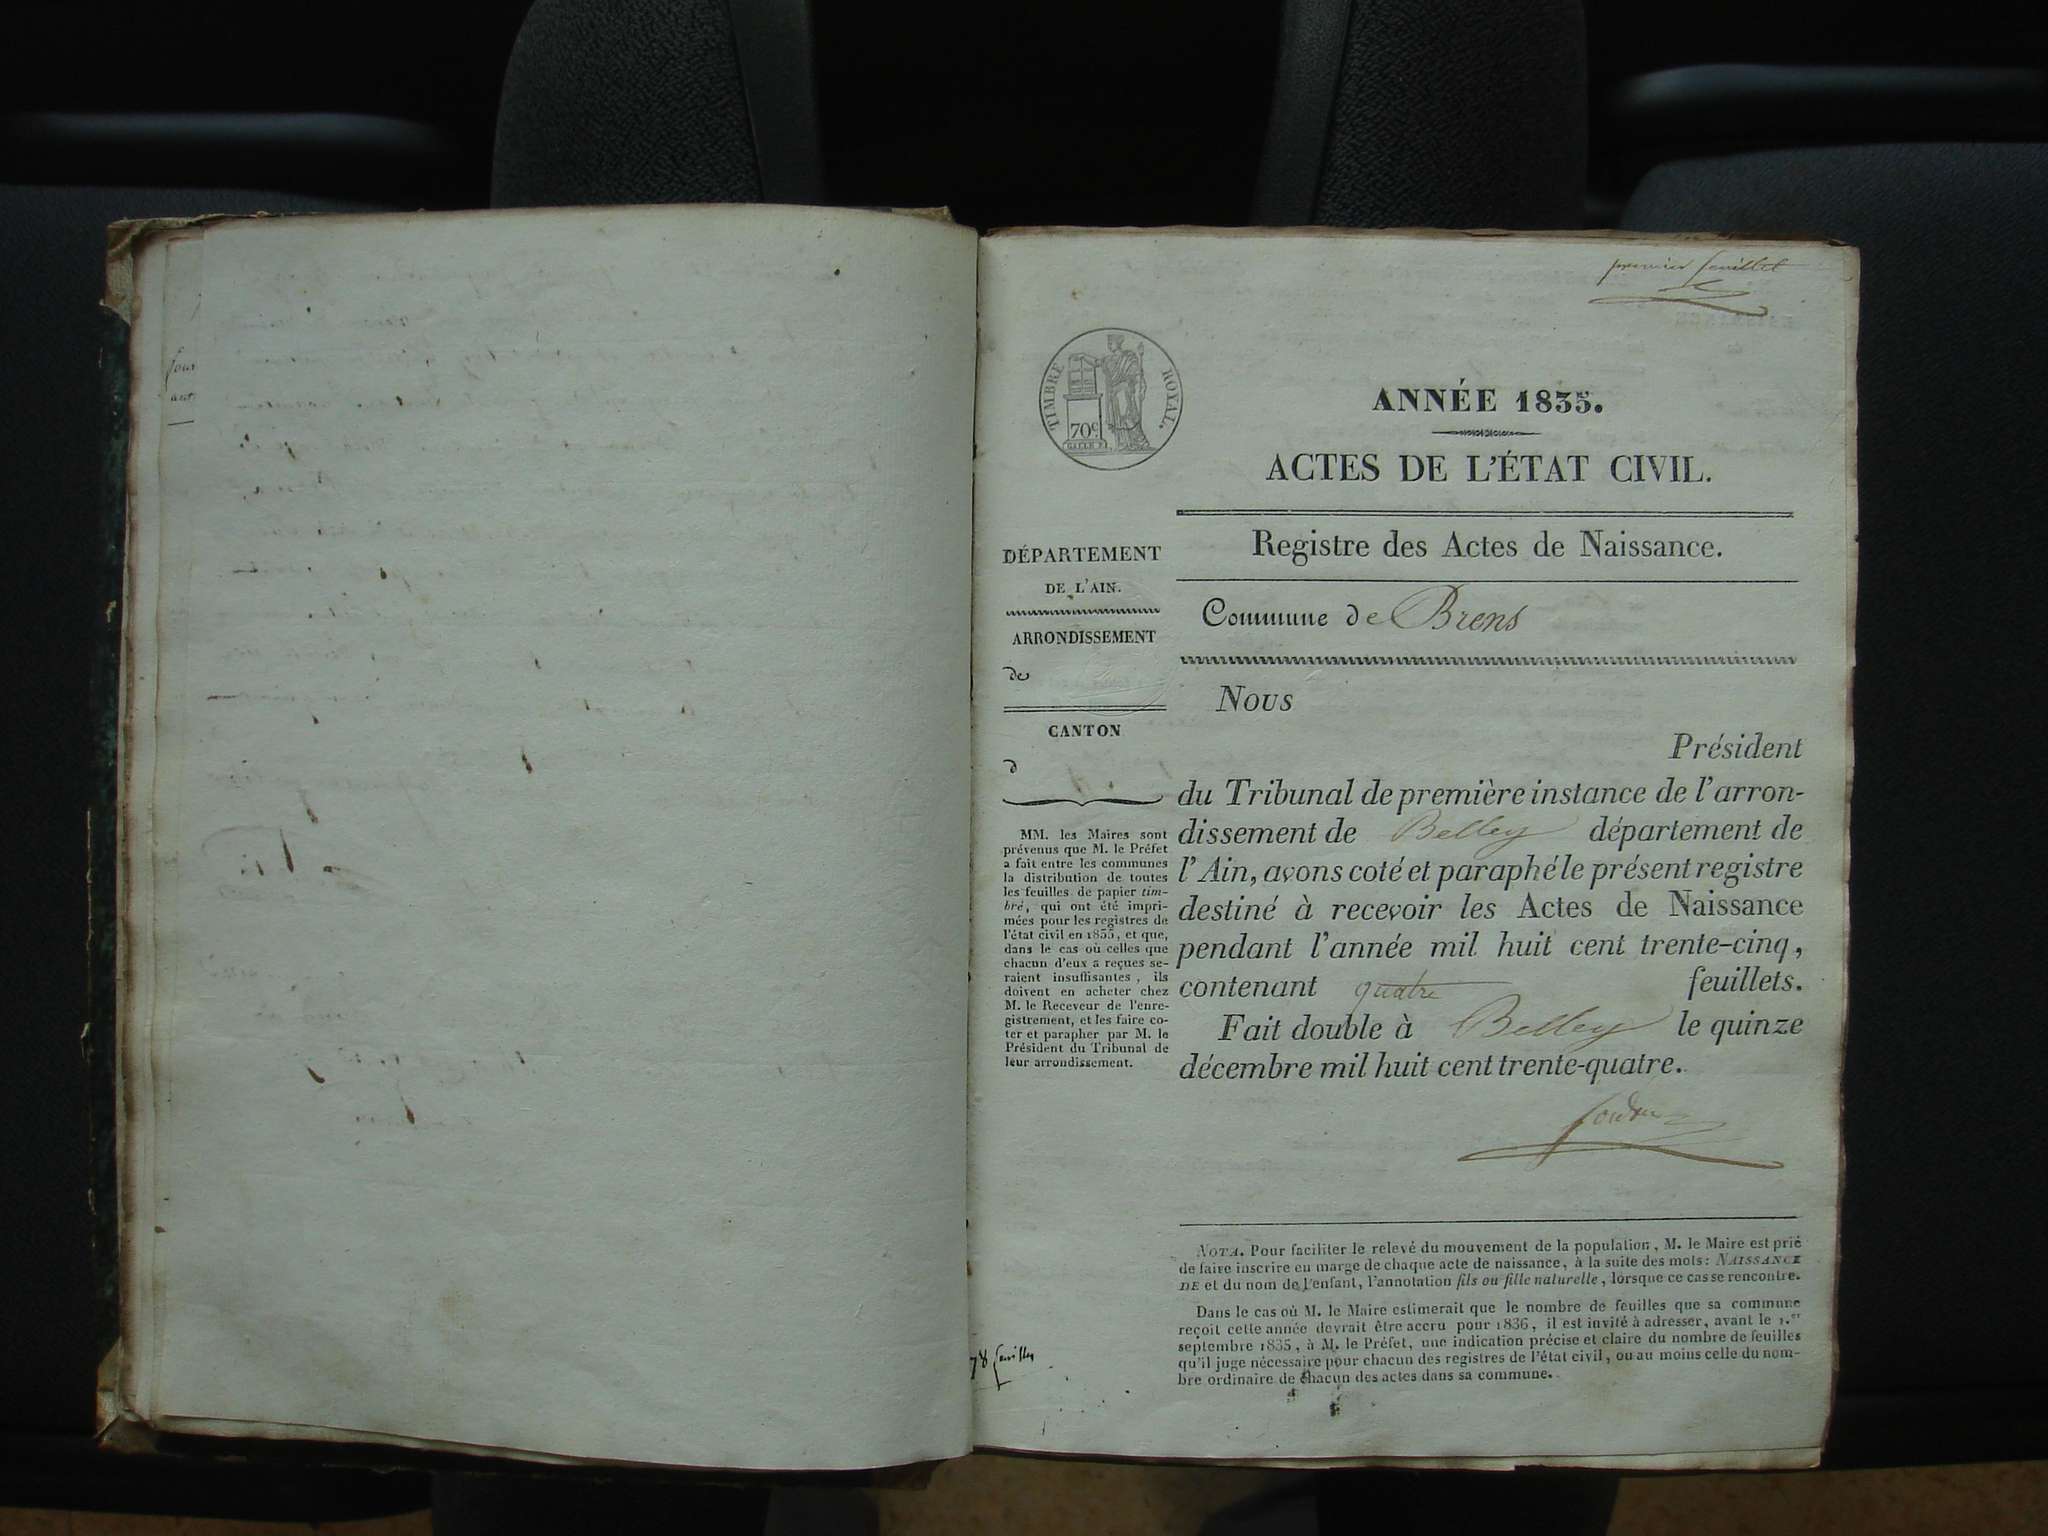 four
premier feuillet
TIMBRE ROYAL.
70 c.
ANNÉE 1835.
ACTES DE L'ÉTAT CIVIL.
Registre des Actes de Naissance.
Commune de Brens
DÉPARTEMENT
DE L'AIN.
ARRONDISSEMENT
de
CANTON
d
MM. les Maires sont
prévenus que M. le Préfet
a fait entre les communes
la distribution de toutes
les feuilles de papier tim-
bré, qui ont été impri-
mées pour les registres de
l'état civil en 1835, et que,
dans le cas où celles que
chacun d'eux a reçues se-
raient insuffisantes, ils
doivent en acheter chez
M. le Receveur de l'enre-
gistrement, et les faire co-
ter et parapher par M. le
Président du Tribunal de
leur arrondissement.
Nous
Président
du Tribunal de première instance de l'arron-
dissement de Belley département de
l'Ain, avons coté et paraphé le présent registre
destiné à recevoir les Actes de Naissance
pendant l'année mil huit cent trente-cinq,
contenant quatre feuillets.
Fait double à Belley le quinze
décembre mil huit cent trente-quatre.
NOTA. Pour faciliter le relevé du mouvement de la population, M. le Maire est prié
de faire inscrire en marge de chaque acte de naissance, à la suite des mots: NAISSANCE
DE et du nom de l'enfant, l'annotation fils ou fille naturelle, lorsque ce cas se rencontre.
Dans le cas où M. le Maire estimerait que le nombre de feuilles que sa commune
reçoit cette année devrait être accru pour 1836, il est invité à adresser, avant le 1.er
septembre 1835, à M. le Préfet, une indication précise et claire du nombre de feuilles
qu'il juge nécessaire pour chacun des registres de l'état civil, ou au moins celle du nom-
bre ordinaire de chacun des actes dans sa commune.
78 feuilles